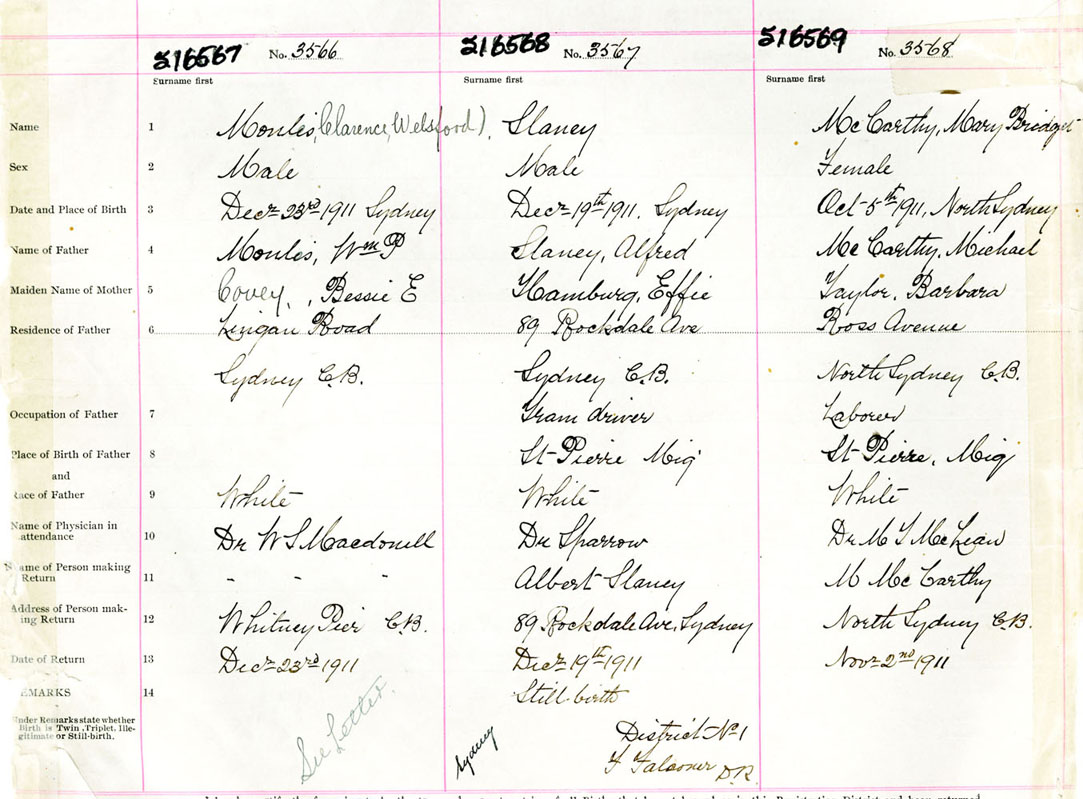 S16567 No. 3566 S16568 No. 3567 S16569 No. 3568
Surname first Surname first Surname first
Name 1 Moulis, Clarence, Welsford) Slaney McCarthy, Mary Bridget
Sex 2 Male Male Female
Date and Place of Birth 3 Decr 23rd 1911 Sydney Decr 19th 1911, Sydney Oct 5th 1911, North Sydney
Name of Father 4 Moulis, Wm P Slaney, Alfred McCarthy, Michael
Maiden Name of Mother 5 Covey, , Bessie E Hamburg, Effie Taylor, Barbara
Residence of Father 6 Lingan Road 89 Rockdale Ave Ross Avenue
Sydney C.B. Sydney C.B. North Sydney C.B.
Occupation of Father 7 Tram driver Laborer
Place of Birth of Father 8 St Pierre Miq St Pierre, Miq
and
Race of Father 9 White White White
Name of Physician in
attendance 10 Dr W S Macdonell Dr Sparrow Dr M T McLean
Name of Person making
Return 11 " " " Albert Slaney M McCarthy
Address of Person mak-
ing Return 12 Whitney Pier C.B. 89 Rockdale Ave, Sydney North Sydney C.B.
Date of Return 13 Decr 23rd 1911 Decr 19th 1911 Novr 2nd 1911
REMARKS 14 Still-birth
Under Remarks state whether
Birth is Twin, Triplet, Ille-
gitimate or Still-birth.
See Letter
Sydney
District No 1
F Falconer D.R.